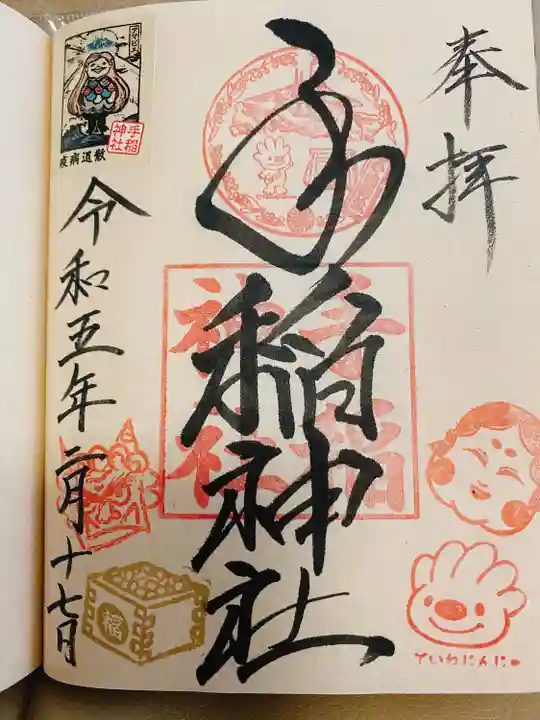 奉拝
手稲神社
手稲
神社
令和五年二月十七日
アマビエ
手稲
神社
疫病退散
福